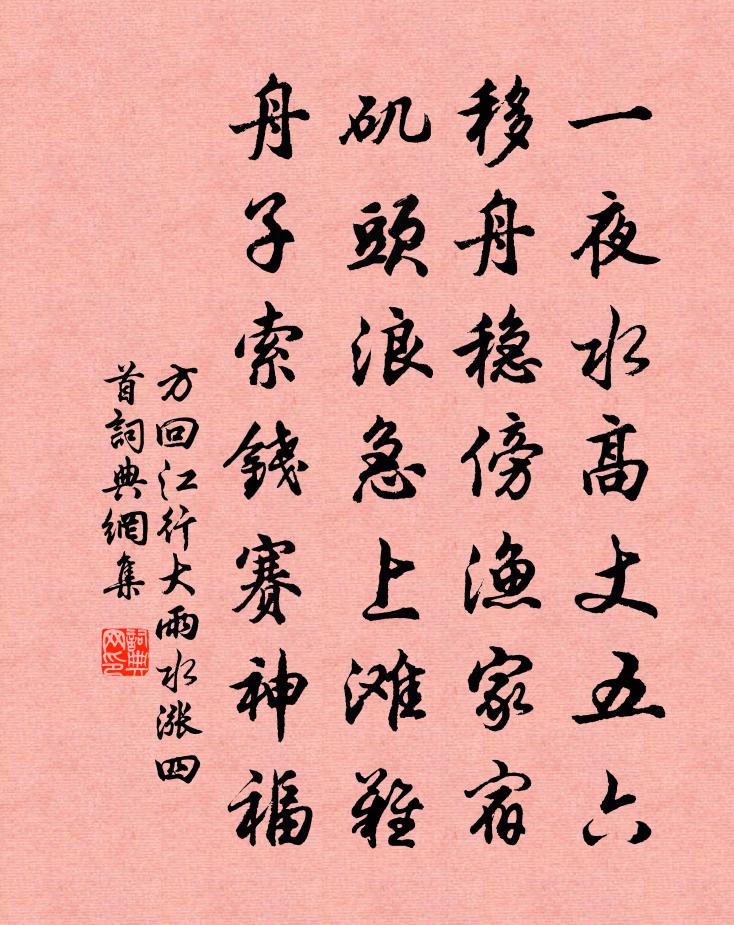 一夜水高丈五六
移舟稳傍渔家宿
矶頭浪急上滩難
舟子索錢賽神福
方回江行大雨水涨四
首詞典網集
詞典网印